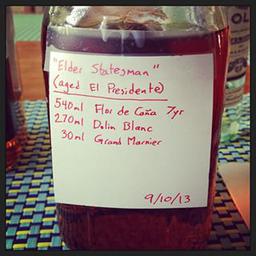 "Elder Statesman"
(aged El Presidente)
540ml Flor de Caña 7yr
270ml Dolin Blanc
30ml Grand Marnier
9/10/13